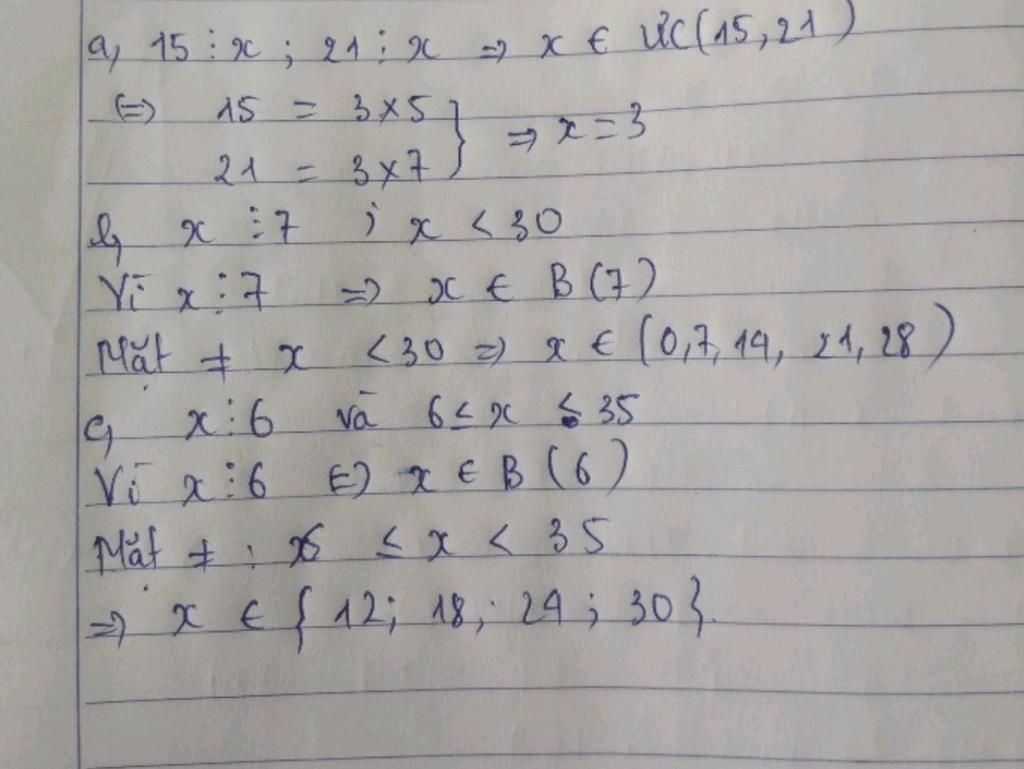 a, 15 ⋮ x ; 21 ⋮ x ⇒ x ∈ ƯC(15, 21)
(=) 15 = 3×5
21 = 3×7 } ⇒ x = 3
b, x ⋮ 7 ; x < 30
Vì x ⋮ 7 ⇒ x ∈ B (7)
Mặt ≠ x < 30 ⇒ x ∈ (0, 7, 14, 21, 28)
c, x ⋮ 6 và 6 ≤ x ≤ 35
Vì x ⋮ 6 ⇒ x ∈ B (6)
Mặt ≠ : 6 ≤ x < 35
⇒ x ∈ { 12; 18; 24; 30}.